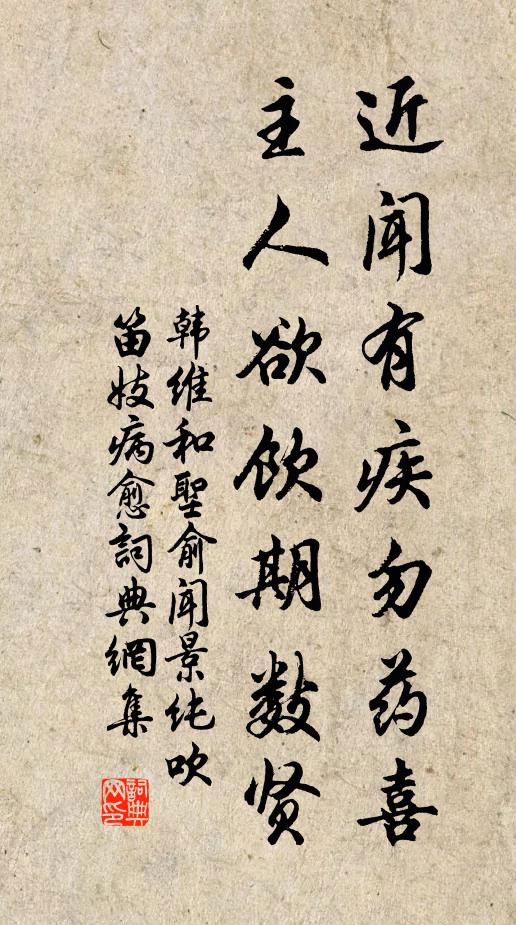 近闻有疾勿药喜
主人欲饮期数贤
韩维和聖俞闻景纯吹
笛妓病愈詞典網集
詞典
网印